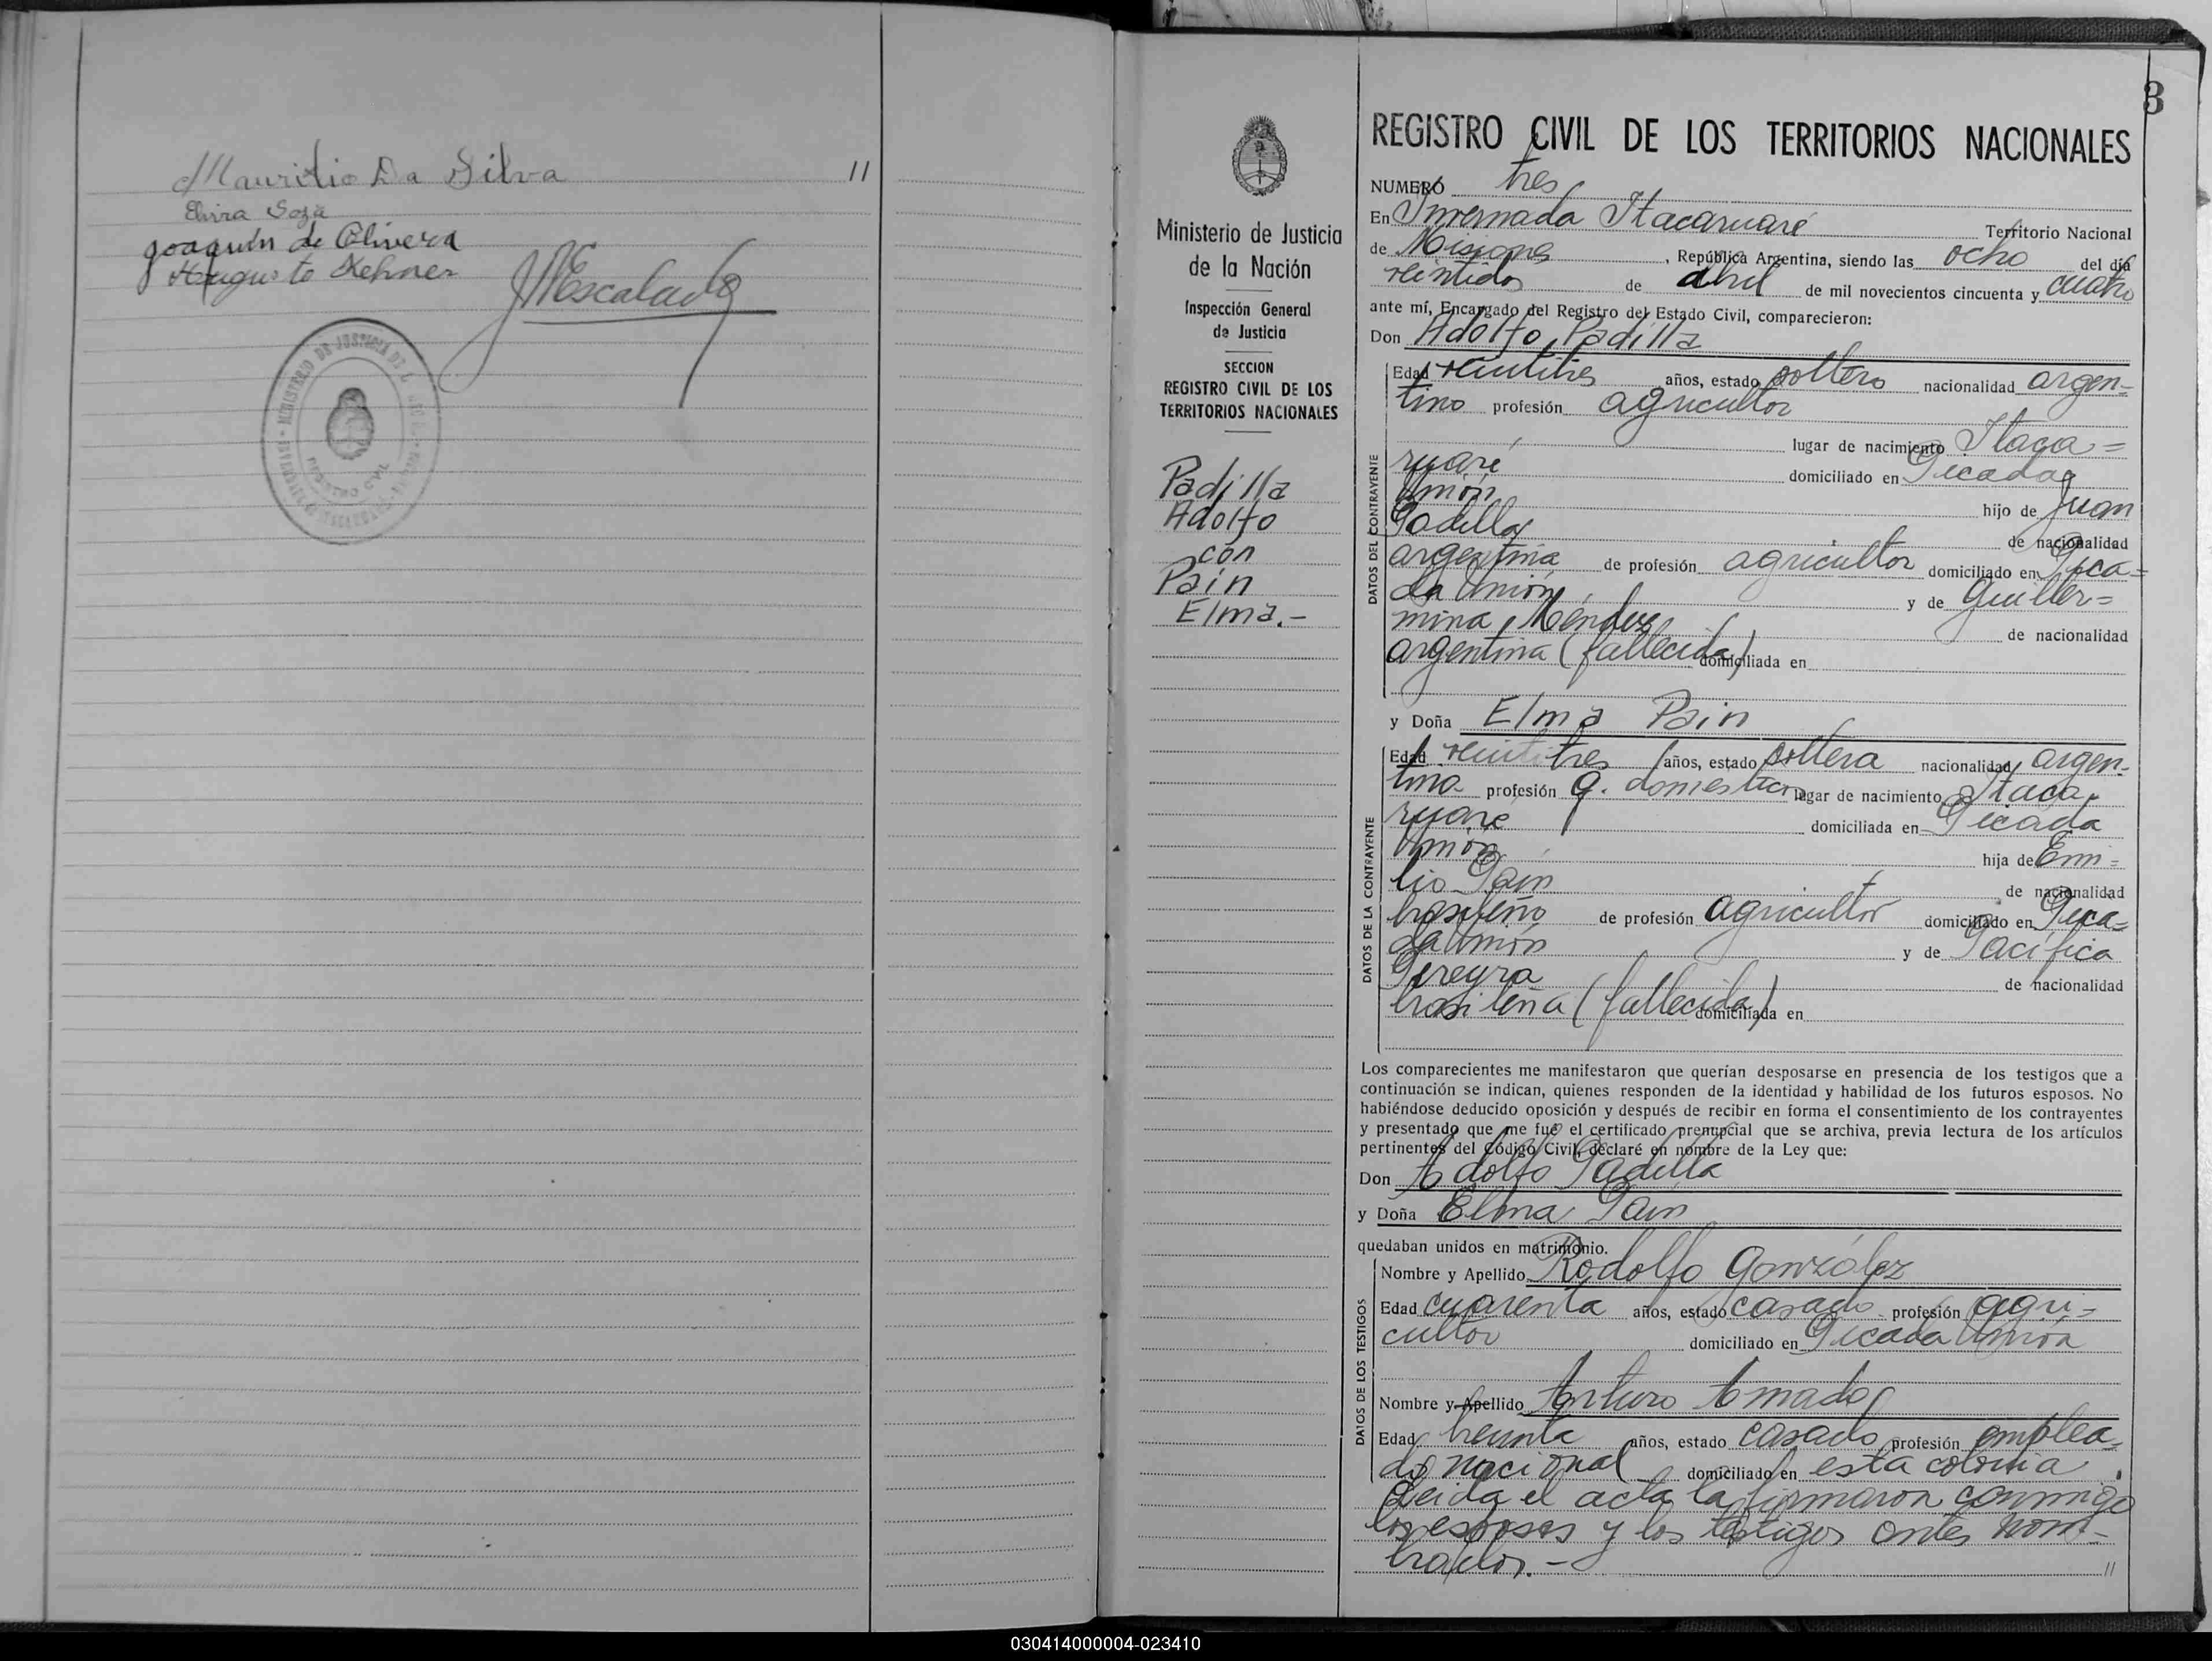 Mauricio Da Silva 11
Elvira Soza
Joaquín de Olivera
Augusto
JMEscalada
REGISTRO CIVIL
3
Ministerio de Justicia
de la Nación
Inspección General
de Justicia
SECCION
REGISTRO CIVIL DE LOS
TERRITORIOS NACIONALES
Padilla
Adolfo
con
Pain
Elma.-
REGISTRO CIVIL DE LOS TERRITORIOS NACIONALES
NUMERO tres
En Invernada Itacaruaré Territorio Nacional
de Misiones, República Argentina, siendo las ocho del día
veintidos de abril de mil novecientos cincuenta y cuatro
ante mí, Encargado del Registro del Estado Civil, comparecieron:
Don Adolfo Padilla
DATOS DEL CONTRAYENTE
Edad veintitres años, estado soltero nacionalidad argen-
tino profesión agricultor
lugar de nacimiento Itaca=
ruaré domiciliado en Picada
Unión hijo de Juan
Padilla de nacionalidad
argentina de profesión agricultor domiciliado en Pica=
da Unión y de Guiller=
mina Méndez de nacionalidad
argentina (fallecida) domiciliada en
y Doña Elma Pain
DATOS DE LA CONTRAYENTE
Edad veintitres años, estado soltera nacionalidad argen-
tina profesión q. domesticos lugar de nacimiento Itaca-
ruaré domiciliada en Picada
Unión hija de Emi=
lio Pain de nacionalidad
brasileño de profesión agricultor domiciliado en Pica=
da Unión y de Pacifica
Pereyra de nacionalidad
brasileña (fallecida) domiciliada en
Los comparecientes me manifestaron que querían desposarse en presencia de los testigos que a
continuación se indican, quienes responden de la identidad y habilidad de los futuros esposos. No
habiéndose deducido oposición y después de recibir en forma el consentimiento de los contrayentes
y presentado que me fué el certificado prenupcial que se archiva, previa lectura de los artículos
pertinentes del Código Civil, declaré en nombre de la Ley que:
Don Adolfo Padilla
y Doña Elma Pain
quedaban unidos en matrimonio.
DATOS DE LOS TESTIGOS
Nombre y Apellido Rodolfo González
Edad cuarenta años, estado casado profesión agri-
cultor domiciliado en Picada Unión
Nombre y Apellido Arturo Amado
Edad treinta años, estado casado profesión emplea-
do nacional domiciliado en esta colonia.
Leida el acta la firmaron conmigo
los esposos y los testigos antes nom-
brados.- 11
030414000004-023410